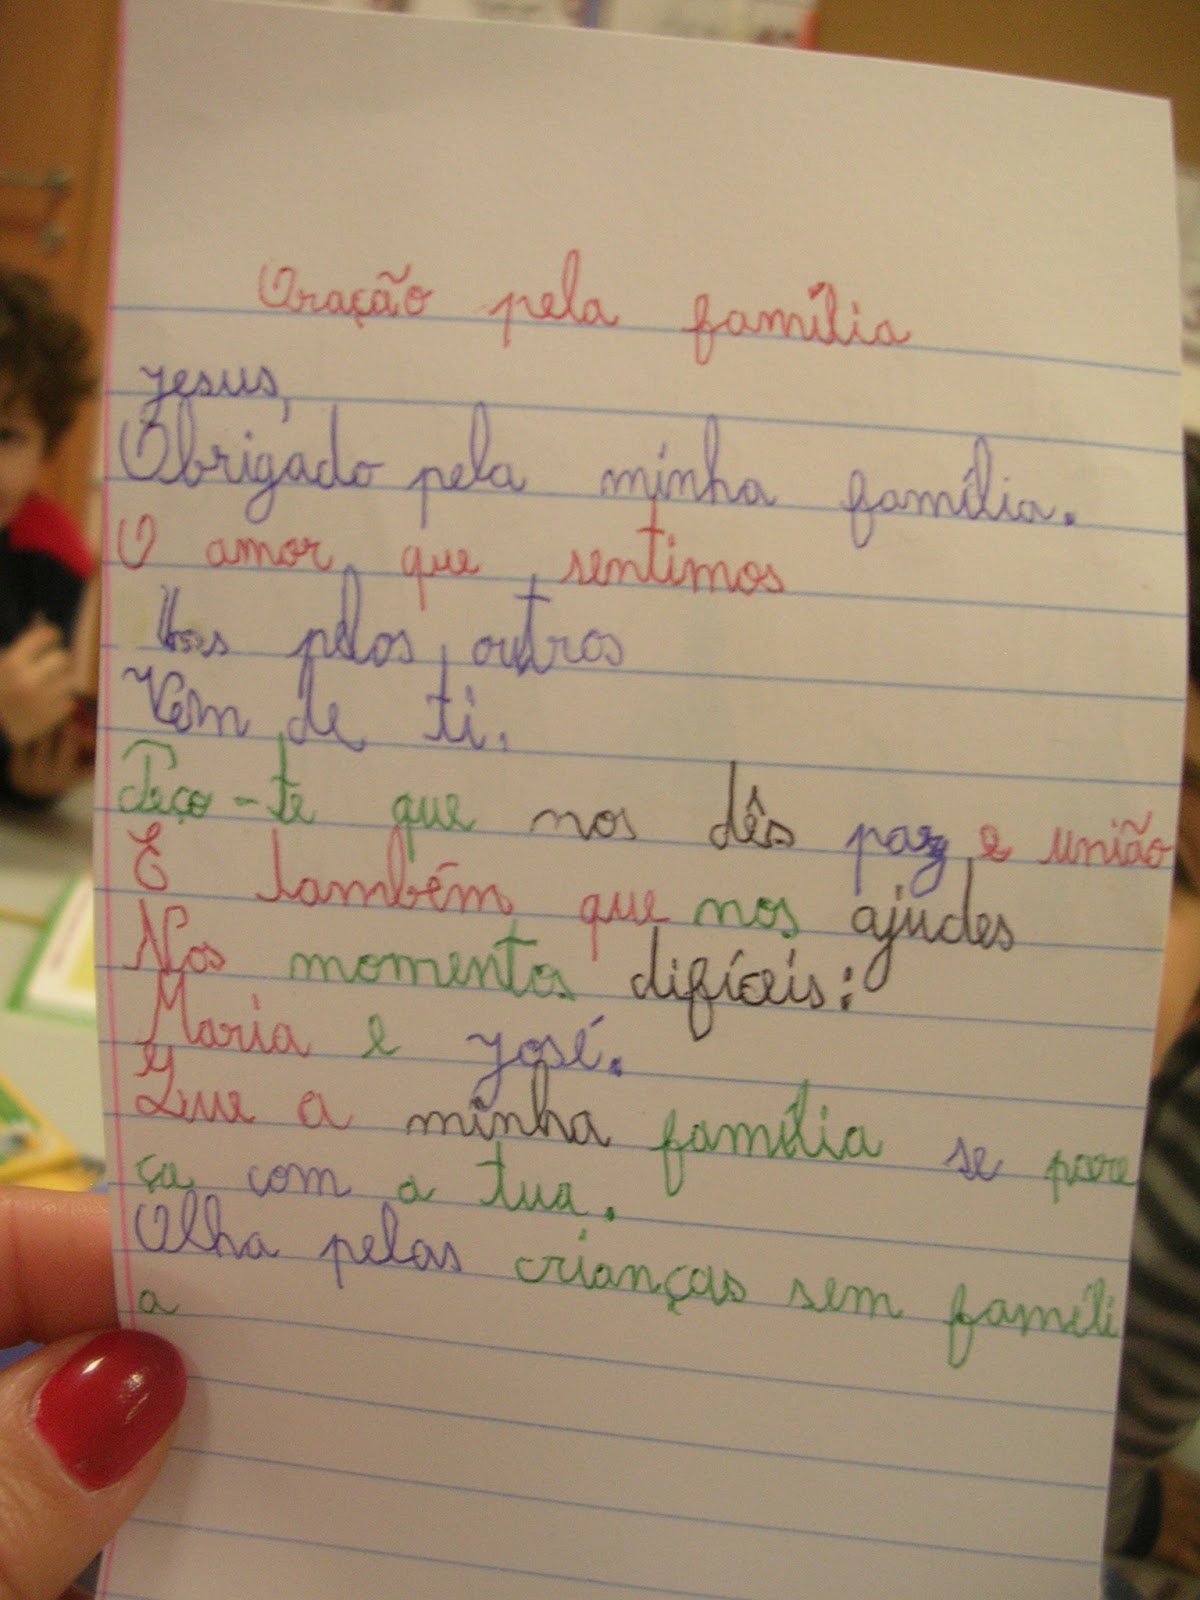 Oração pela família
Jesus,
Obrigado pela minha família.
O amor que sentimos
Uns pelos outros
Vem de ti.
Peço-te que nos dês paz e união
E também que nos ajudes
Nos momentos difíceis:
Maria e José.
Que a minha família se pare
ça com a tua.
Olha pelas crianças sem famíli
a